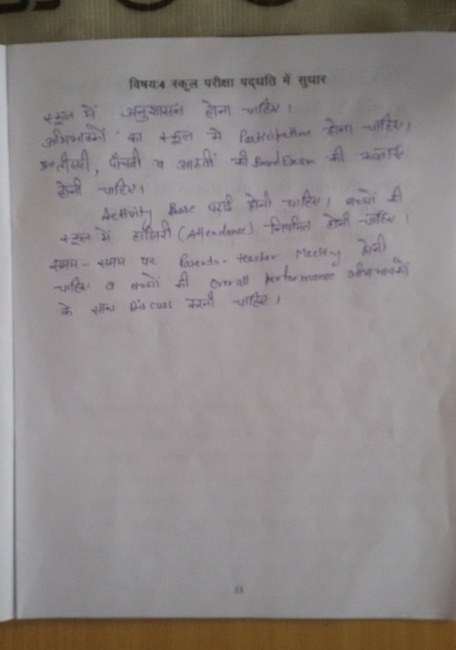 विषय:4 स्कूल परीक्षा पद्धति में सुधार
स्कूल में अनुशासन होना चाहिए।
अभिभावकों का स्कूल में Participation होना चाहिए।
तीसरी, पाँचवी व आठवीं की Board Exam की
होनी चाहिए।
Activity Base पढाई होनी चाहिए। बच्चों की
स्कूल में हाजिरी (Attendance) नियमित होनी चाहिए।
समय-समय पर Parents-teacher Meeting होनी
चाहिए व बच्चों की overall performance अभिभावकों
के साथ Discuss करनी चाहिए।